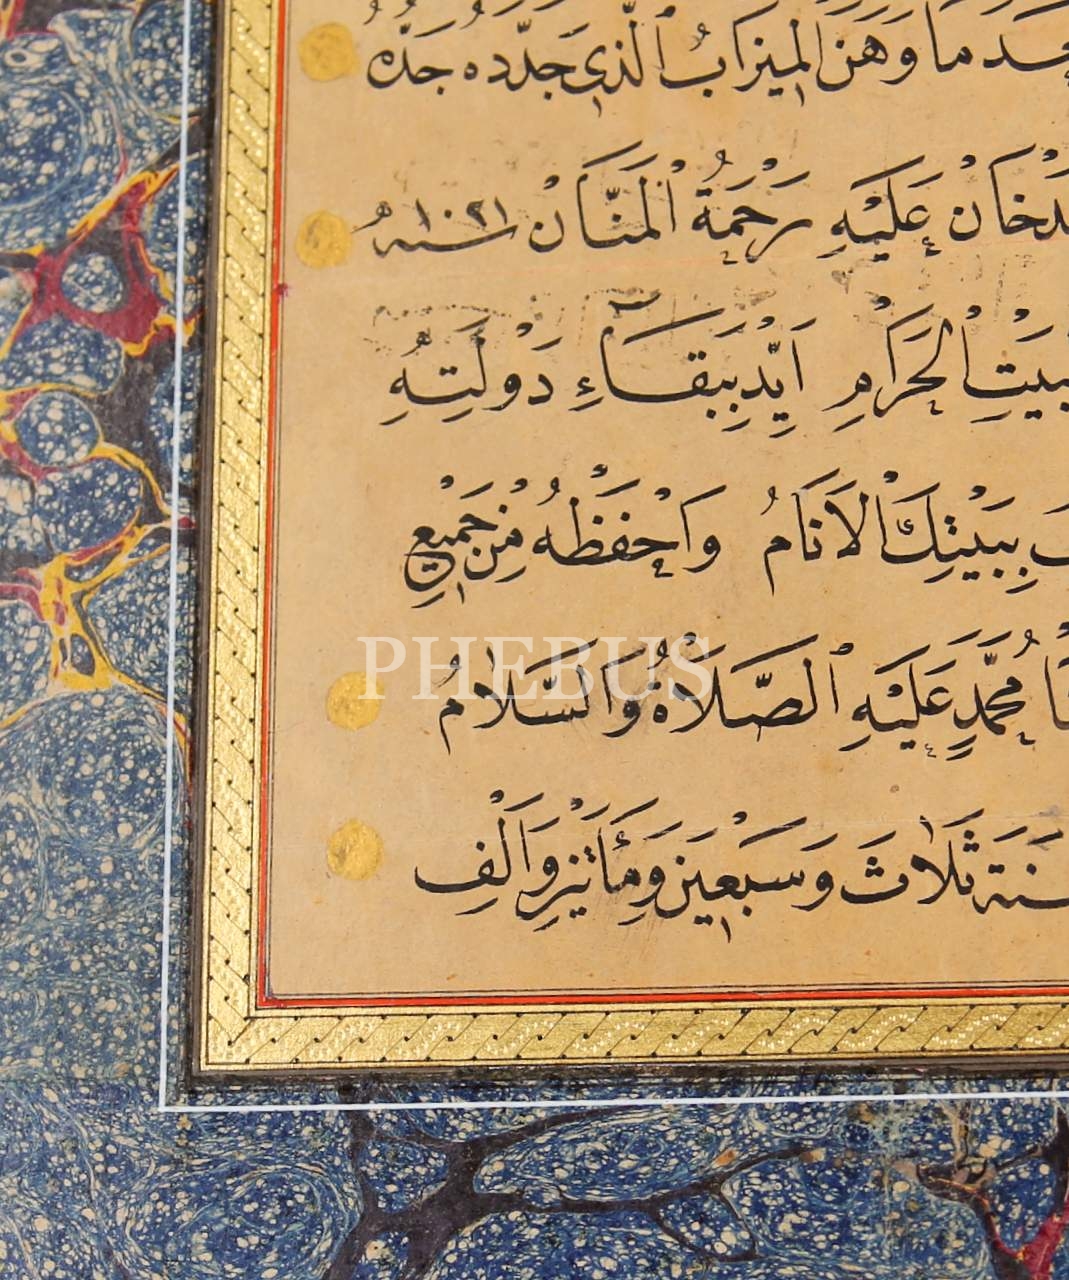 بعد ما وهن الميزاب الّذي جدّده جدّه
خان عليه رحمة المنّان سنه ١٠٢١
البيت الحرام ايّد ببقاء دولته
ببيتك الانام واحفظه من جميع
محمّد عليه الصّلاة والسّلام
PHEBUS
سنة ثلاث وسبعين ومأتين والف